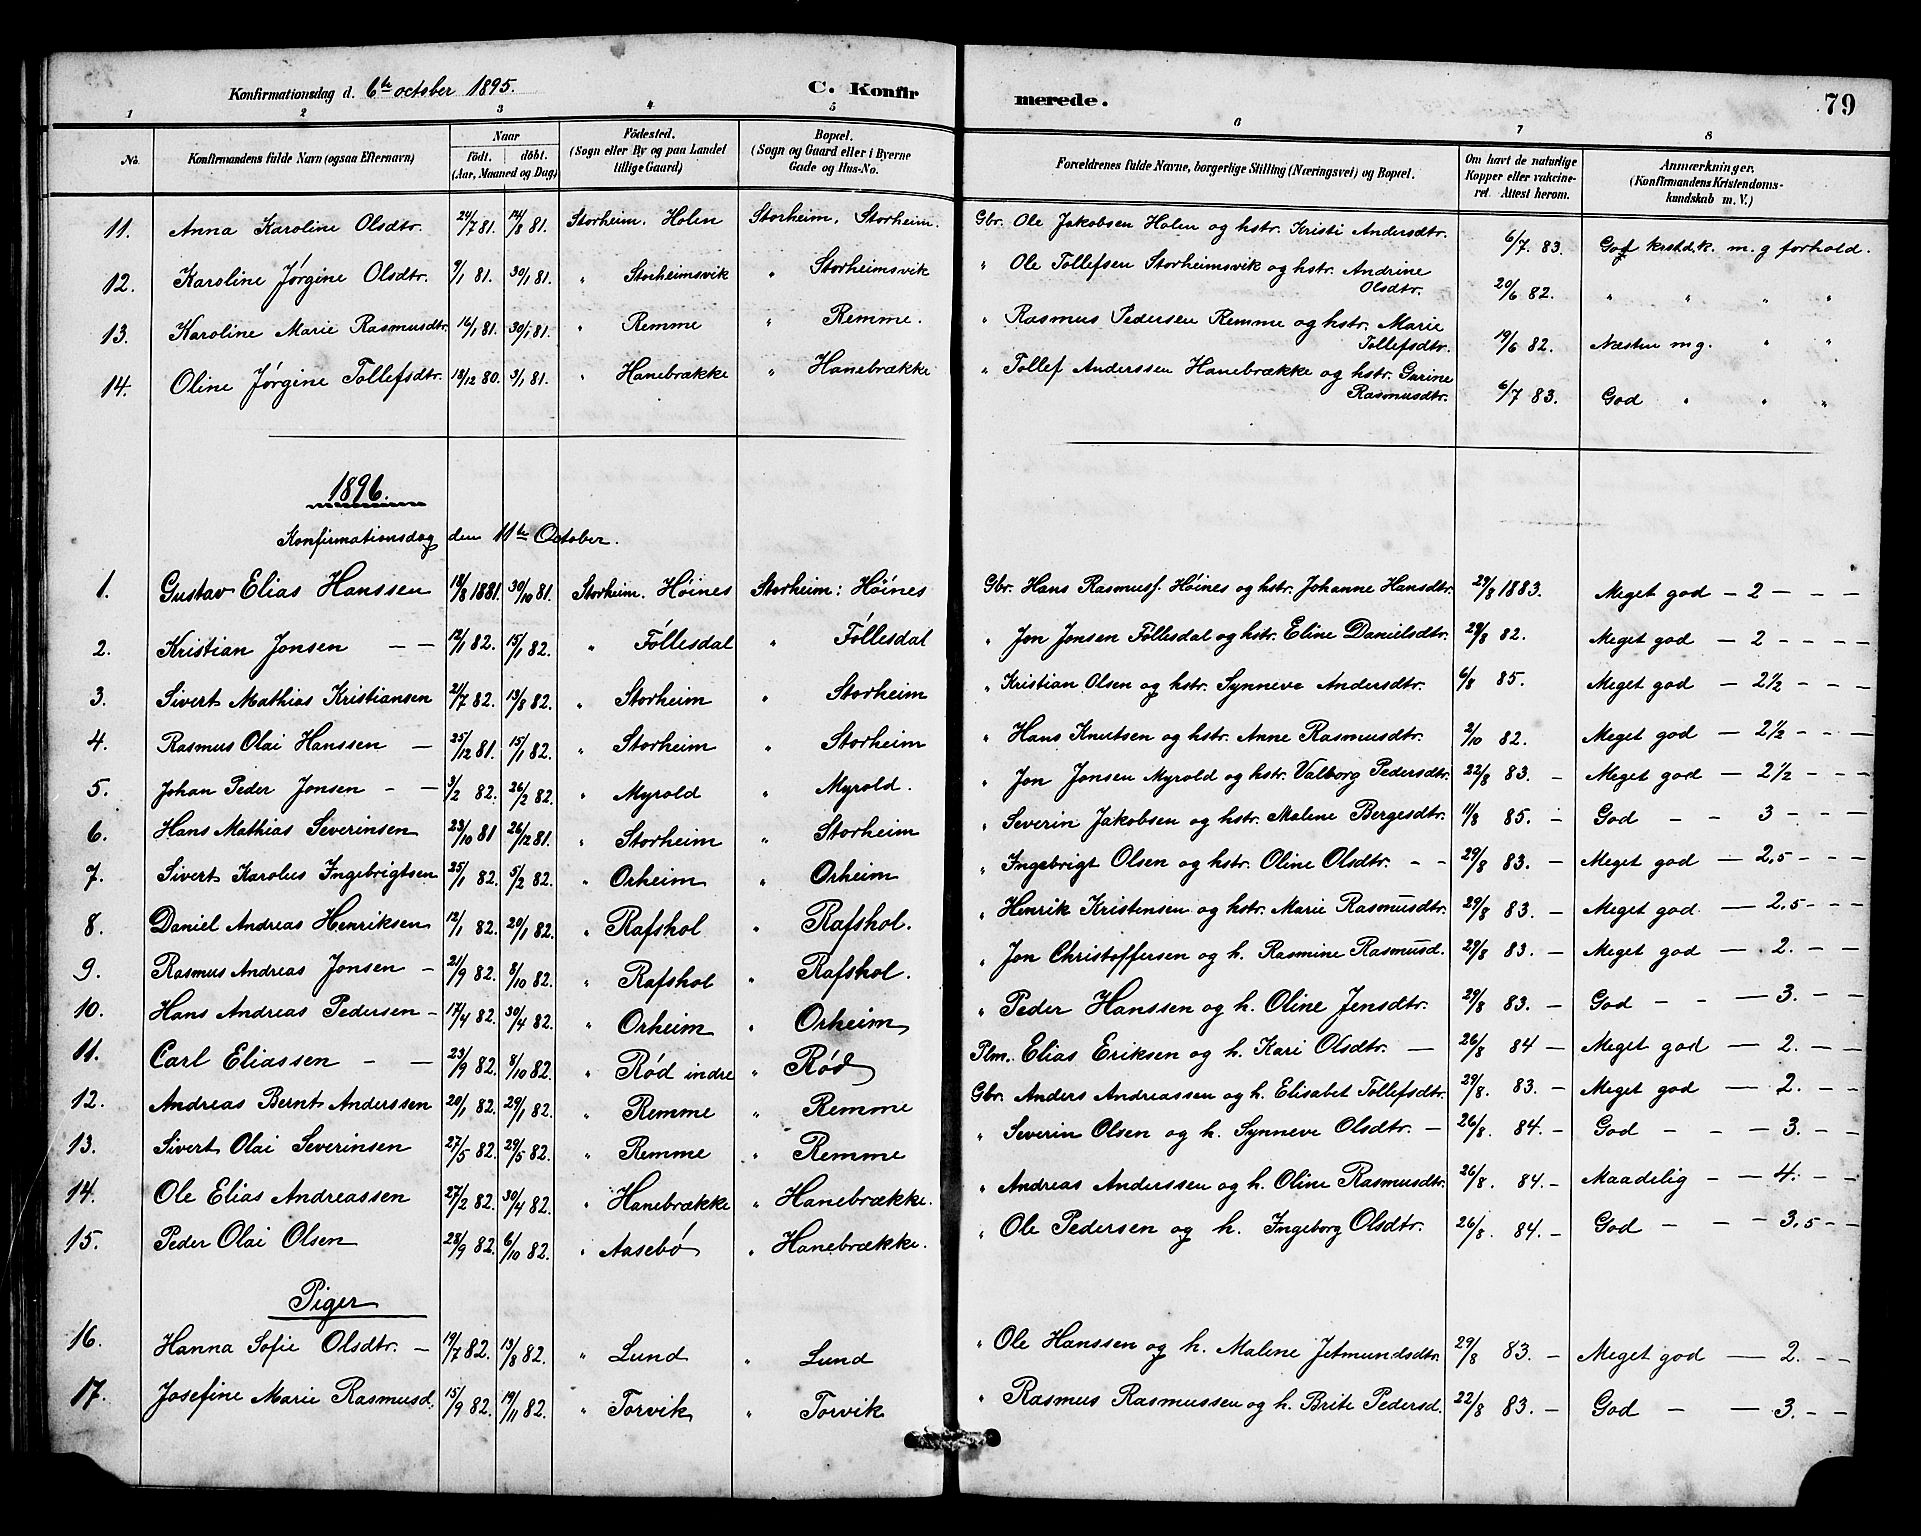 Konfirmationsdag d. 6te october 1895. C. Konfirmerede. 79
1 2 3 4 5 6 7 8
No. Konfirmandens fulde Navn (ogsaa Efternavn) Naar födt. döbt. (Aar, Maaned og Dag) Födested. (Sogn eller By og paa Landet tillige Gaard) Bopæl. (Sogn og Gaard eller i Byerne Gade og Hus-No. Forældrenes fulde Navne, borgerlige Stilling (Næringsvei) og Bopæl. Om havt de naturlige Kopper eller vakcineret. Attest herom. Anmærkninger. (Konfirmandens Kristendomskundskab m. V.)
11. Anna Karoline Olsdtr. 24/7 81. 14/8 81. Storheim. Holen Storheim. Storheim. Gbr. Ole Jakobsen Holen og hstr. Kristi Andersdtr. 6/7 83. God krstd.k. m. g forhold.
12. Karoline Jørgine Olsdtr. 9/1 81. 30/1 81. " Storheimsvik " Storheimsvik " Ole Tollefsen Storheimsvik og hstr. Andrine Olsdtr. 20/6 82. " " " "
13. Karoline Marie Rasmusdtr. 16/1 81. 30/1 81. " Remme " Remme. " Rasmus Pedersen Remme og hstr. Marie Tollefsdtr. 19/6 82. Næsten mg. " "
14. Oline Jørgine Tollefsdtr. 18/12 80. 3/1 81. " Hanebrække " Hanebrække " Tollef Anderssen Hanebrække og hstr. Gurine Rasmusdtr. 6/7 83. God " " "
1896.
Konfirmationsdag den 11te October.
1. Gustav Elias Hanssen 18/8 1881. 30/10 81. Storheim. Höines Storheim: Höines Gbr. Hans Rasmusf. Höines og hstr. Johanne Hansdtr. 29/8 1883. Meget god — 2 — — —
2. Kristian Jonsen — — 12/1 82. 15/1 82. " Föllesdal " Föllesdal " Jon Jonsen Föllesdal og hstr. Eline Danielsdtr. 29/8 82. Meget god — 2 — — — —
3. Sivert Mathias Kristiansen 2/7 82. 13/8 82. " Storheim " Storheim " Kristian Olsen og hstr. Synneve Andersdtr. 6/8 85. Meget god — 2½ — — —
4. Rasmus Olai Hanssen — 25/12 81. 15/1 82. " Storheim " Storheim " Hans Knutsen og hstr. Anne Rasmusdtr. 2/10 82. Meget god — 2½ — — —
5. Johan Peder Jonsen — — 3/2 82. 26/2 82. " Myrold " Myrold. " Jon Jonsen Myrold og hstr. Valborg Pedersdtr. 22/8 83. — Meget god — 2½ — — —
6. Hans Mathias Severinsen 23/10 81 26/12 81. " Storheim " Storheim " Severin Jakobsen og hstr. Malene Bergesdtr. 11/8 85. — God — — 3 — — —
7. Sivert Karolus Ingebrigtsen 25/1 82. 5/2 82. " Orheim " Orheim " Ingebrigt Olsen og hstr. Oline Olsdtr. — — 29/8 83. — Meget god — 2,5 — — —
8. Daniel Andreas Henriksen 12/1 82. 20/1 82. " Rafshol " Rafshol. " Henrik Kristensen og hstr. Marie Rasmusdtr. 29/8 83. — Meget god. — 2,5 — — —
9. Rasmus Andreas Jonsen — 21/9 82. 8/10 82. " Rafshol " Rafshol. " Jon Christoffersen og h. Rasmine Rasmusd. 29/8 83. — Meget god — 2. — — —
10. Hans Andreas Pedersen — 17/4 82. 30/4 82. " Orheim " Orheim " Peder Hanssen og h. Oline Jensdtr. 29/8 83. — God — — — 3. — — —
11. Carl Eliassen — — 23/9 82. 8/10 82. " Rød indre " Rød Plm. Elias Eriksen og h. Kari Olsdtr. — 26/8 84 — Meget god — 2. — — —
12. Andreas Bernt Anderssen 20/1 82. 29/1 82. " Remme " Remme Gbr. Anders Andreassen og h. Elisabet Tollefsdtr. 29/8. 83. — Meget god — 2. — —
13. Sivert Olai Severinsen 27/5 82. 29/5 82. " Remme " Remme " Severin Olsen og h. Synneve Olsdtr. — 26/8. 84. — God — — — 3. — —
14. Ole Elias Andreassen 27/2 82. 30/4 82. " Hanebrække " Hanebrække. " Andreas Anderssen og h. Oline Rasmusdtr. 26/8. 84. — Maadelig — — 4. — —
15. Peder Olai Olsen 28/9 82. 6/10 82. " Aasebö " Hanebrække. " Ole Pedersen og h. Ingeborg Olsdtr. 26/8. 84. — God — — — 3,5 — —
Piger
16. Hanna Sofie Olsdtr. — 19/7 82. 13/8 82. " Lund " Lund " Ole Hanssen og h. Malene Jetmundsdtr. 29/8 83. — Meget god — 2. — —
17. Josefine Marie Rasmusd. 15/9 82. 19/11 82. " Torvik " Torvik " Rasmus Rasmussen og h. Brite Pedersd. 22/8 83. — God — — 3. — —